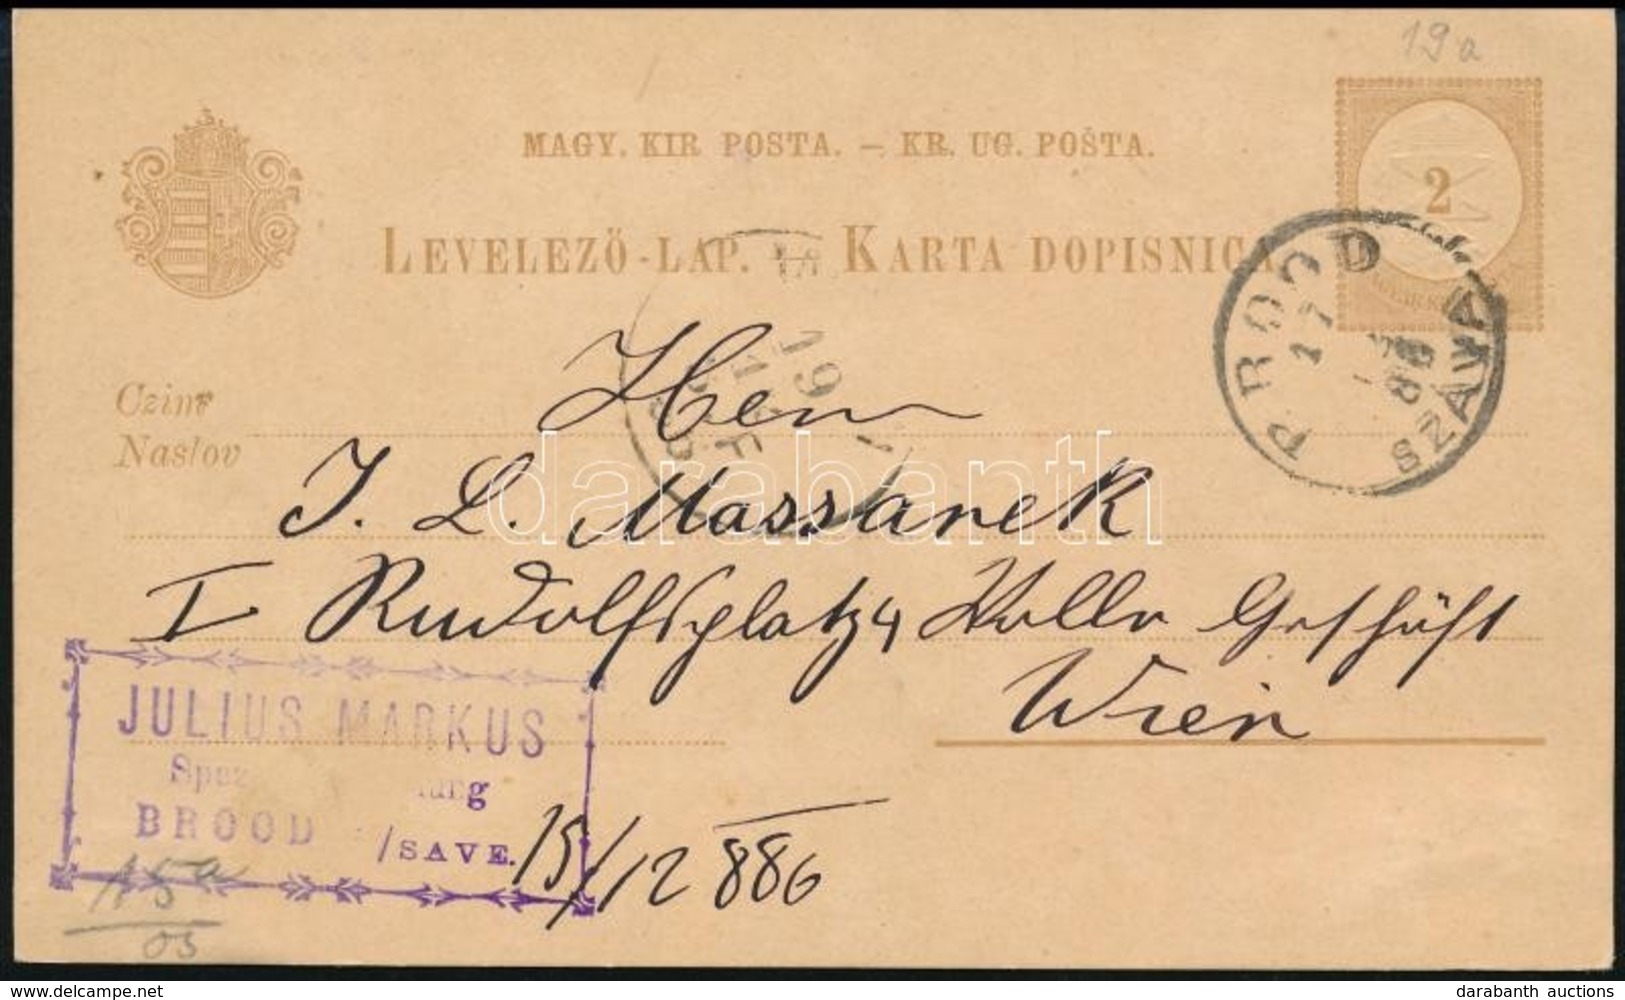 19a
MAGY. KIR. POSTA. – KR. UG. POŠTA.
2
LEVELEZŐ-LAP. – KARTA DOPISNICA.
P. BROOD
SZÁVA
17
Czim
Naslov
Herrn
J. L. Massarek
I Rudolfsplatz 4 Wolle Geschäft
Wien
JULIUS MARKUS
BROOD /SAVE.
15/12 886
15a
05
darabanth
www.delcampe.net
darabanth auctions